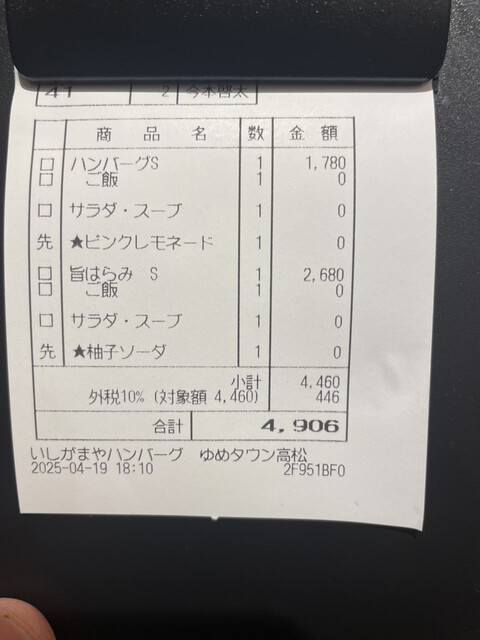 41 2 今本啓太
商 品 名 数 金 額
□ ハンバーグS 1 1,780
□ ご飯 1 0
□ サラダ・スープ 1 0
先 ★ピンクレモネード 1 0
□ 旨はらみ S 1 2,680
□ ご飯 1 0
□ サラダ・スープ 1 0
先 ★柚子ソーダ 1 0
小計 4,460
外税10% (対象額 4,460) 446
合計 4,906
いしがまやハンバーグ ゆめタウン高松
2025-04-19 18:10 2F951BF0